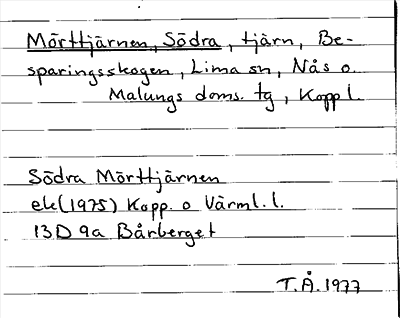 Mörttjärnen, Södra, tjärn, Be-
sparingsskogen, Lima sn, Nås o.
Malungs doms. tg, Kopp l.
Södra Mörttjärnen
ek(1975) Kopp. o Värml. l.
13D 9a Bårberget
T.Å. 1977